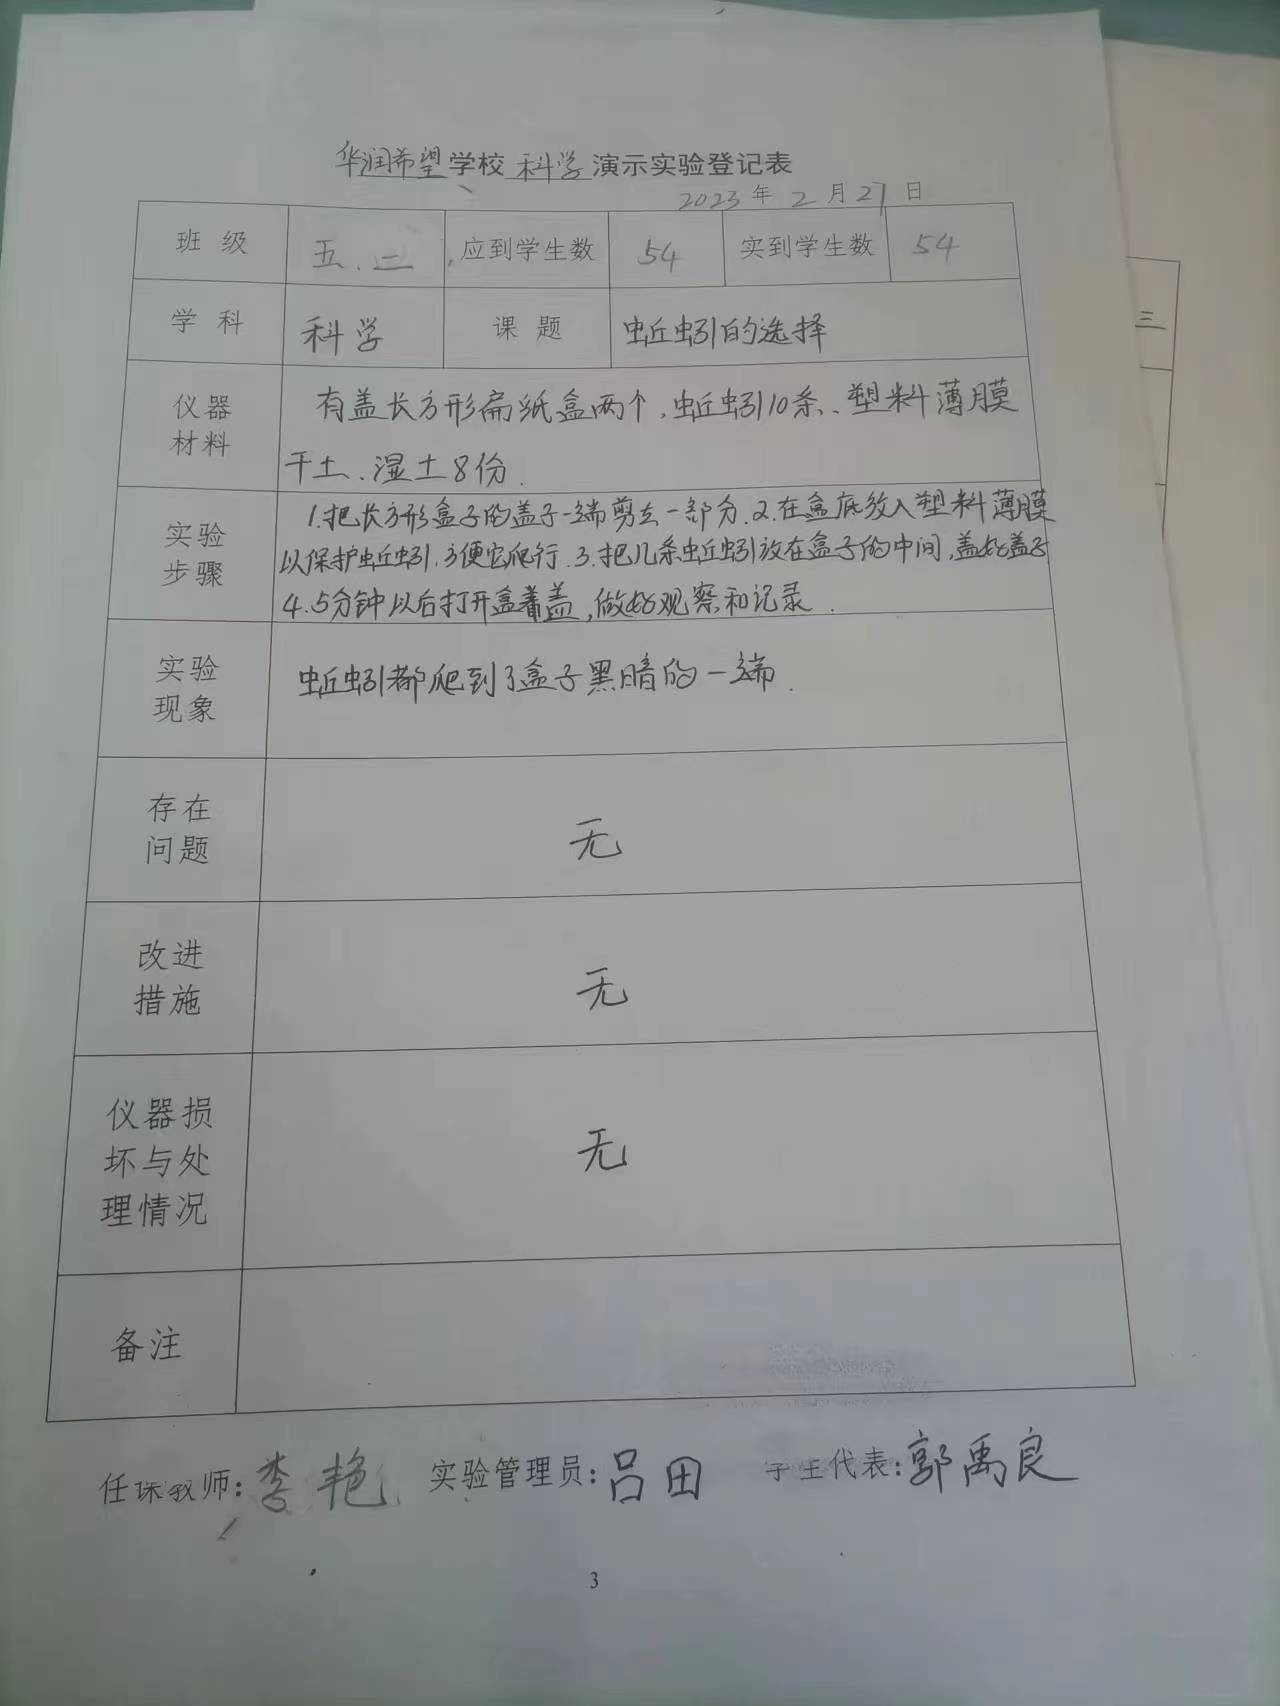 华润希望学校 科学 演示实验登记表
2023年 2月 27日
班级 五.二 应到学生数 54 实到学生数 54
学科 科学 课题 蚯蚓的选择
仪器材料 有盖长方形扁纸盒两个,蚯蚓10条、塑料薄膜
干土、湿土8份.
实验步骤 1.把长方形盒子的盖子一端剪去一部分.2.在盒底放入塑料薄膜
以保护蚯蚓.方便它爬行.3.把几条蚯蚓放在盒子的中间,盖好盖子
4.5分钟以后打开盒盖,做好观察和记录.
实验现象 蚯蚓都爬到了盒子黑暗的一端.
存在问题 无
改进措施 无
仪器损坏与处理情况 无
备注
任课教师:李艳 实验管理员:吕田 学生代表:郭禹良
3
三